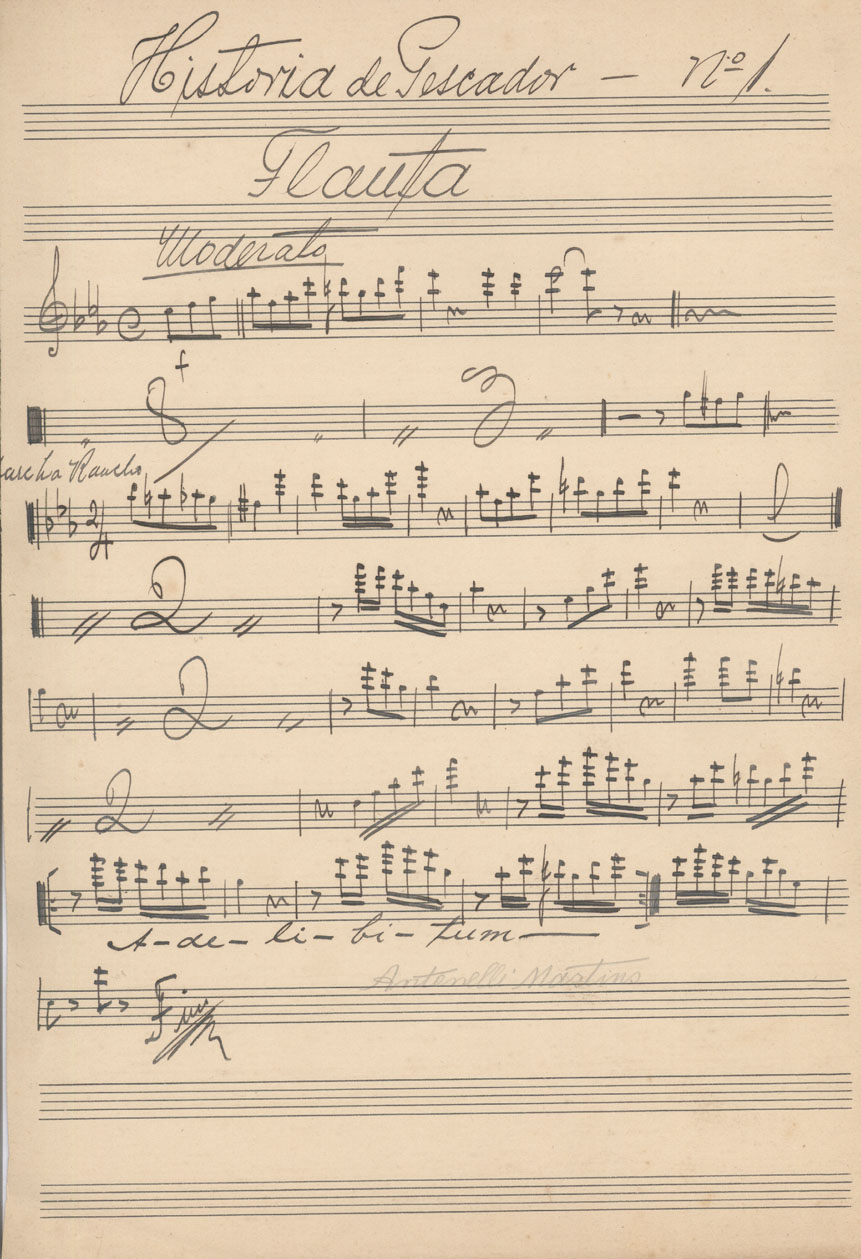 Historia de Pescador - Nº 1.
Flauta
Moderato
f
8 3
Marcha Rancho
2/4
2
2
2
A-de-li-bi-tum
Antonelli Martins
Fim